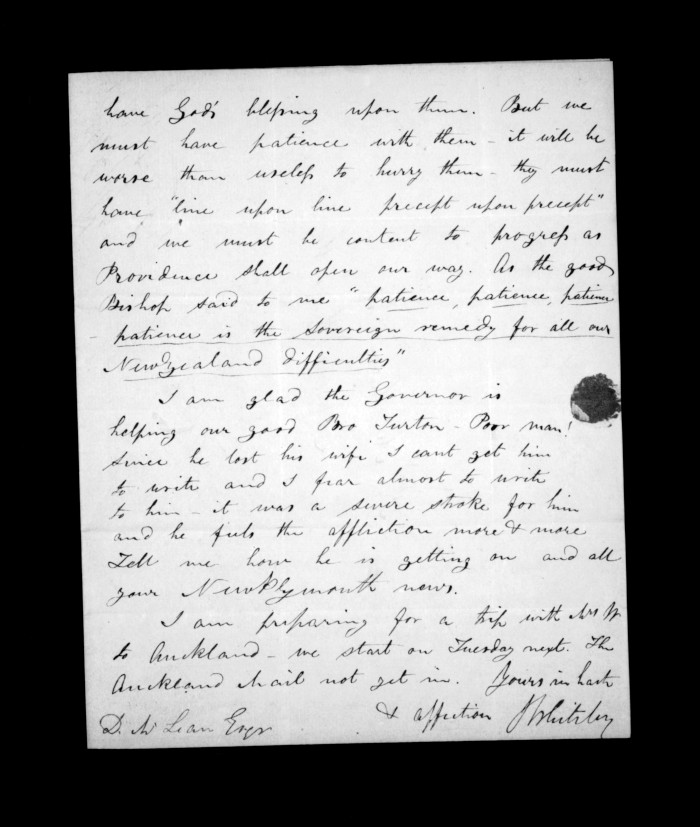 have God's blessing upon them. But we
must have patience with them - it will be
worse than useless to hurry them - they must
have "line upon line precept upon precept"
and we must be content to progress as
Providence shall open our way. As the good
Bishop said to me "patience, patience, patience
patience is the Sovereign remedy for all our
New Zealand difficulties"
I am glad the Governor is
helping our good Bro Turton - Poor man!
since he lost his wife I cant get him
to write and I fear almost to write
to him - it was a severe stroke for him
and he feels the affliction more & more
Tell me how he is getting on and all
your New Plymouth news.
I am preparing for a trip with Mrs W
to Auckland - we start on Tuesday next. The
Auckland Mail not yet in. Yours in haste
& affection J Whiteley
D. Mc Lean Esqr